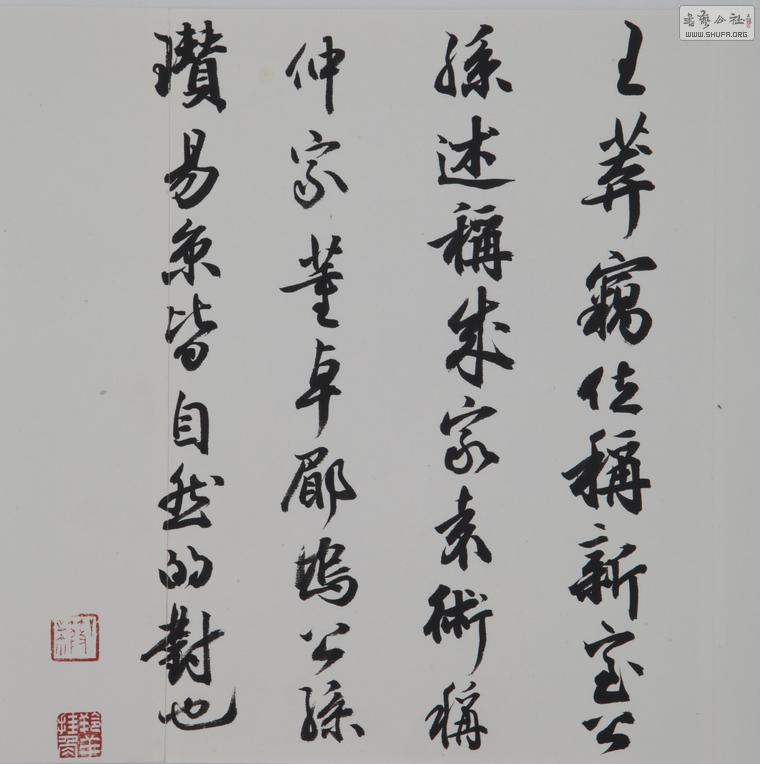 王莽竊位稱新室公
孫述稱成家袁術稱
仲家董卓郿塢公孫
瓚易京皆自然的對也
書藝公社
WWW.SHUFA.ORG